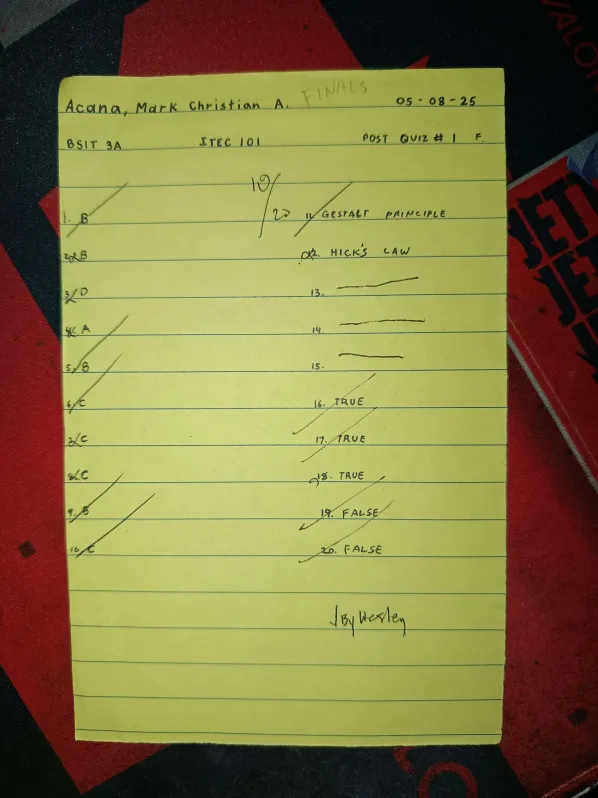 FINALS
Acana, Mark Christian A. 05-08-25
BSIT 3A ITEC 101 POST QUIZ # 1 F.
10/20
1. B
2. B
3. D
4. A
5. B
6. C
7. C
8. C
9. B
10. C
11. GESTALT PRINCIPLE
12. HICK'S LAW
13.
14.
15.
16. TRUE
17. TRUE
18. TRUE
19. FALSE
20. FALSE
By Wesley
VALOR
JETT
JET